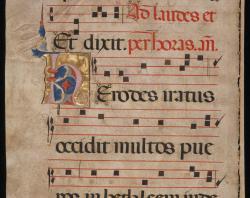 Ad laudes et
Et dixit. per horas. an.
Herodes iratus
occidit multos pue
ros in bethleem iude